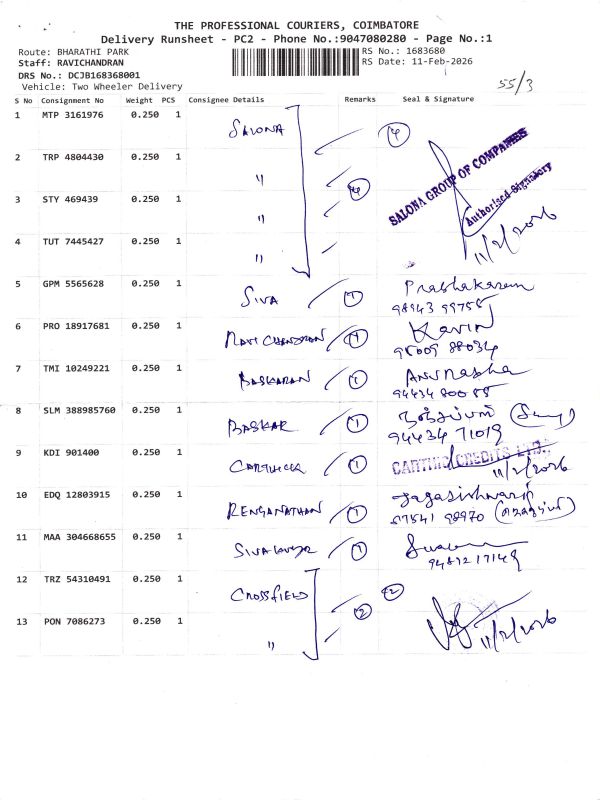 THE PROFESSIONAL COURIERS, COIMBATORE
Delivery Runsheet - PC2 - Phone No.:9047080280 - Page No.:1
Route: BHARATHI PARK
RS No.: 1683680
Staff: RAVICHANDRAN
RS Date: 11-Feb-2026
DRS No.: DCJB168368001
Vehicle: Two Wheeler Delivery
55/3
S No Consignment No Weight PCS Consignee Details Remarks Seal & Signature
1 MTP 3161976 0.250 1 SALONA 4
2 TRP 4804430 0.250 1 " 4
SALONA GROUP OF COMPANIES
Authorised Signatory
11/2/2026
3 STY 469439 0.250 1 "
4 TUT 7445427 0.250 1 "
5 GPM 5565628 0.250 1 SIVA 1 Prabhakaran
98943 99755
6 PRO 18917681 0.250 1 RAVI CHANDRAN 1 Kavin
95009 88034
7 TMI 10249221 0.250 1 BASKARAN 1
94434 80085
8 SLM 388985760 0.250 1 BASKAR 1
94434 71019
9 KDI 901400 0.250 1 1 CARTHIC CREDITS LTD.,
11/2/2026
10 EDQ 12803915 0.250 1 RENGANATHAN 1
11 MAA 304668655 0.250 1 1
12 TRZ 54310491 0.250 1 CROSSFIELD 2 2
13 PON 7086273 0.250 1 " 11/2/2026